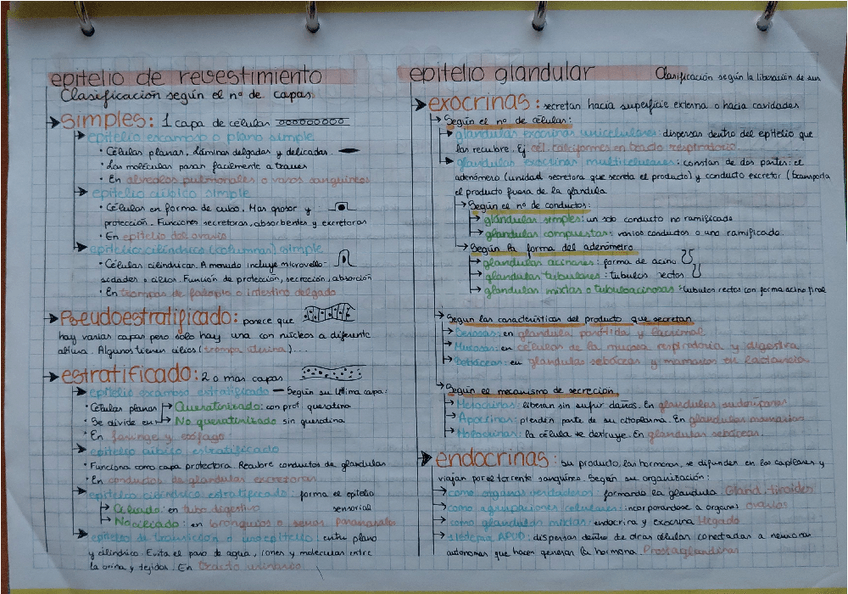 epitelio de revestimiento
Clasificación según el nº de capas
simples: 1 capa de células
epitelio escamoso o plano simple
• Células planas. Láminas delgadas y delicadas.
• Las moléculas pasan facilmente a traves
• En alveolos pulmonales o vasos sanguíneos
epitelio cúbico simple
• Células en forma de cubo. Mas grosor y
protección. Funciones secretoras, absorbentes y excretoras
• En epitelio del ovario
epitelio cilíndrico (columnar) simple
• Células cilindricas. A menudo incluye microvello-
sidades o cilios. Función de protección, secreción, absorción
• En trompas de falopio o intestino delgado
Pseudoestratificado: parece que
hay varias capas pero sólo hay una con núcleos a diferente
altura. Algunos tienen cilios (trompa uterina)...
estratificado: 2 o mas capas
epitelio escamoso estratificado – Según su última capa:
• Células planas Queratinizado: con prot. queratina
• Se divide en No queratinizado sin queratina
• En faringe y esófago
epitelio cúbico estratificado
• Funciona como capa protectora. Recubre conductos de glandulas
• En conductos de glandulas excretoras
epitelio cilíndrico estratificado: forma el epitelio
sensorial
Ciliado: en tubo digestivo
No ciliado: en bronquios o senos paranasales
epitelio de transición o uroepitelio: entre plano
y cilíndrico. Evita el paso de agua, iones y moleculas entre
la orina y tejidos. En tracto urinario
epitelio glandular
Clasificación según la liberación de sus
exocrinas: secretan hacia superficie externa o hacia cavidades
Según el nº de células:
glandulas exocrinas unicelulares dispersas dentro del epitelio que
las recubre. Ej: cél. caliciformes en tracto respiratorio
glandulas exocrinas multicelulares: constan de dos partes: el
adenómero (unidad secretora que secreta el producto) y conducto excretor (transporta
el producto fuera de la glandula
Según el nº de conductos:
glándulas simples: un solo conducto no ramificado
glandulas compuestas: varios conductos o uno ramificado
Según la forma del adenómero
glandulas acinares: forma de acino
glandulas tubulares: tubulos rectos
glandulas mixtas o tubuloacinosas: tubulos rectos con forma acino final
Segun las características del producto que secretan
Serosas: en glandula parótida y lacrimal
Mucosas: en células de la mucosa respiratoria y digestiva
Sebáceas: en glandulas sebáceas y mamarias en lactancia
Según el mecanismo de secreción
Merocrinas: liberan sin sufrir daños. En glandulas sudoríparas
Apocrinas: pierden parte de su citoplasma. En glandulas mamarias
Holocrinas: la célula se destruye. En glandulas sebáceas
endocrinas: su producto, las hormonas, se difunden en los capilares y
viajan por el torrente sanguíneo. Según su organización:
como organos verdaderos: formando la glandula. Gland. tiroides
como agrupaciones celulares: incorporandose a organos. ovarios
como glandulas mixtas: endocrina y exocrina Hegado
sistema APUD: dispersas dentro de otras células conectadas a neuronas
autonomas que hacen generar la hormona. Prostaglandinas